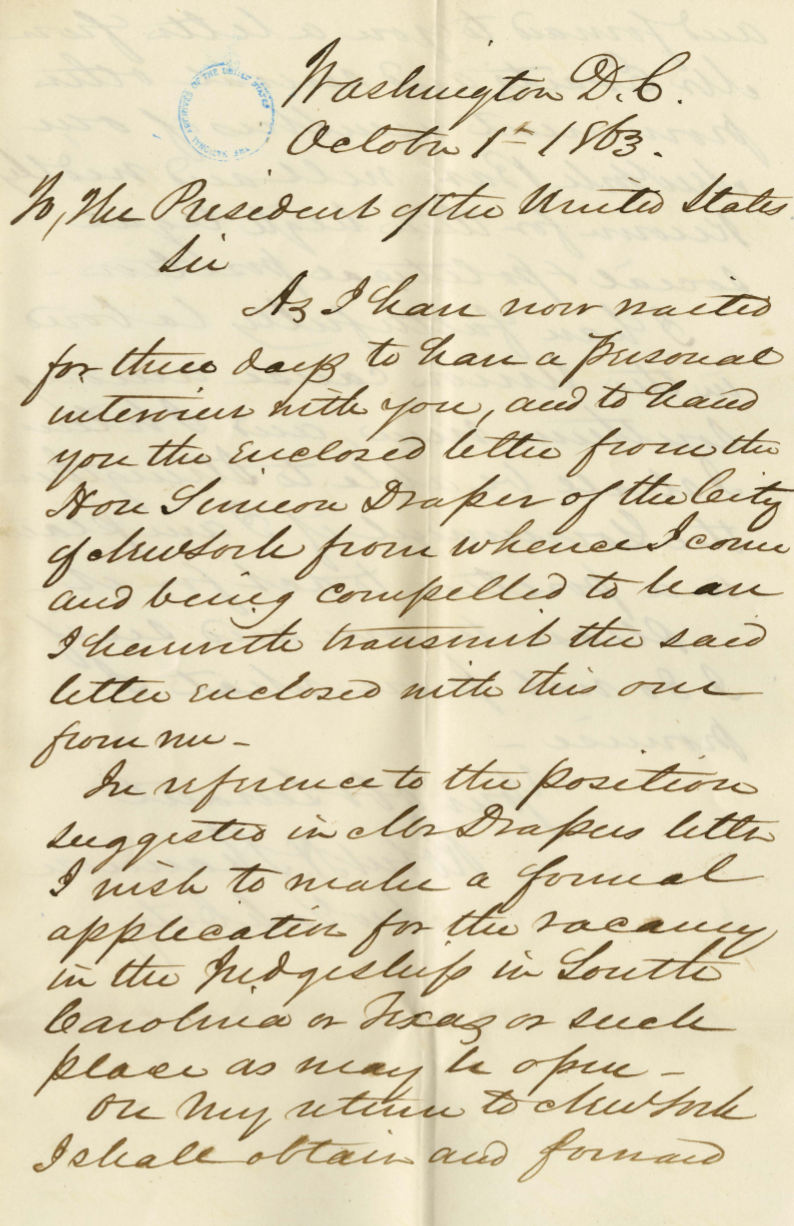 THE NATIONAL ARCHIVES OF THE UNITED STATES
Washington D.C.
October 1st 1863.
To, The President of the United States
Sir
As I have now waited
for three days to have a personal
interview with you, and to hand
you the enclosed letter from the
Hon Simeon Draper of the City
of New York from whence I come
and being compelled to leave
I herewith transmit the said
letter enclosed with this one
from me -
In reference to the position
suggested in Mr Drapers letter
I wish to make a formal
application for the vacancy
in the Judgeship in South
Carolina or Texas or such
place as may be open -
On my return to New York
I shall obtain and forward